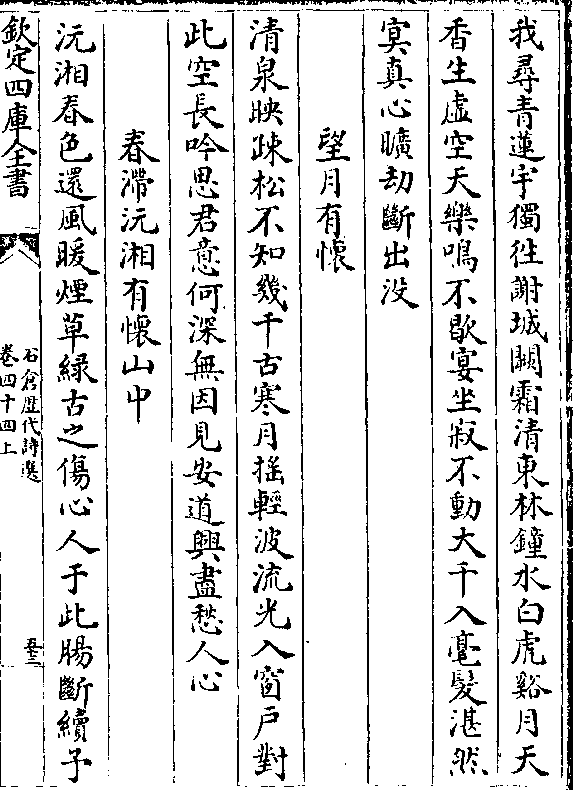 我尋青蓮宇獨徃謝城闕霜清東林鐘水白虎谿月天
香生虛空天樂鳴不歇宴坐寂不動大千入毫髮湛然
㝠真心曠劫斷出没
望月有懷
清泉映疎松不知幾千古寒月揺輕波流光入窗戸對
此空長吟思君意何深無因見安道興盡愁人心
春滯沅湘有懷山中
沅湘春色還風暖煙草緑古之傷心人于此腸斷續予
欽定四庫全書
石倉歴代詩選
卷四十四上
五十三